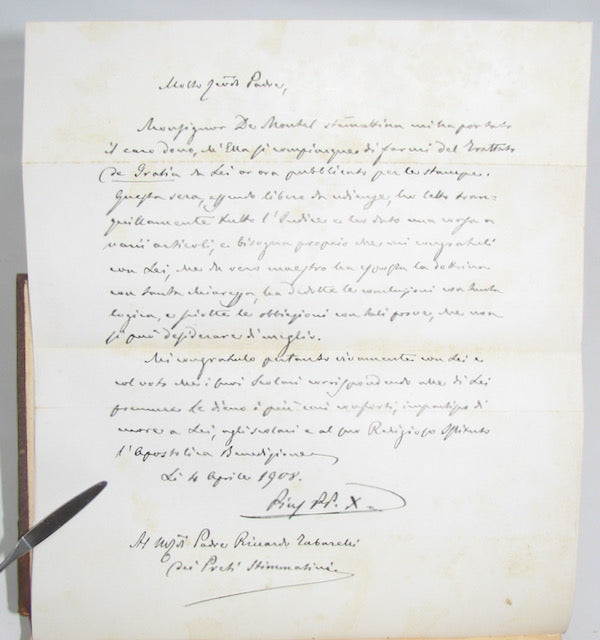 Molto Rev.do Padre,
Monsignor De Montel stamattina mi ha portato
il caro dono, ch'Ella si compiacque di farmi del Trattato
de Gratia da Lei or ora pubblicato per le stampe.
Questa sera, essendo libero da udienze, ho letto tran-
quillamente tutto l'Indice e ho dato una corsa a
varii articoli, e bisogna proprio che mi congratuli
con Lei, che da vero maestro ha esposta la dottrina
con tanta chiarezza, ha dedotte le conclusioni con tanta
logica, e sciolte le obbiezioni con tali prove, che non
si può desiderare di meglio.
Mi congratulo pertanto vivamente con Lei e
col voto che i suoi scolari corrispondendo alle di Lei
premure Le diano i più cari conforti, impartisco di
cuore a Lei, agli scolari e al suo Religioso Istituto
l'Apostolica Benedizione
Li 4 Aprile 1908.
Pius PP. X.
Al Padre Riccardo Tabarelli
dei Preti Stimmatini